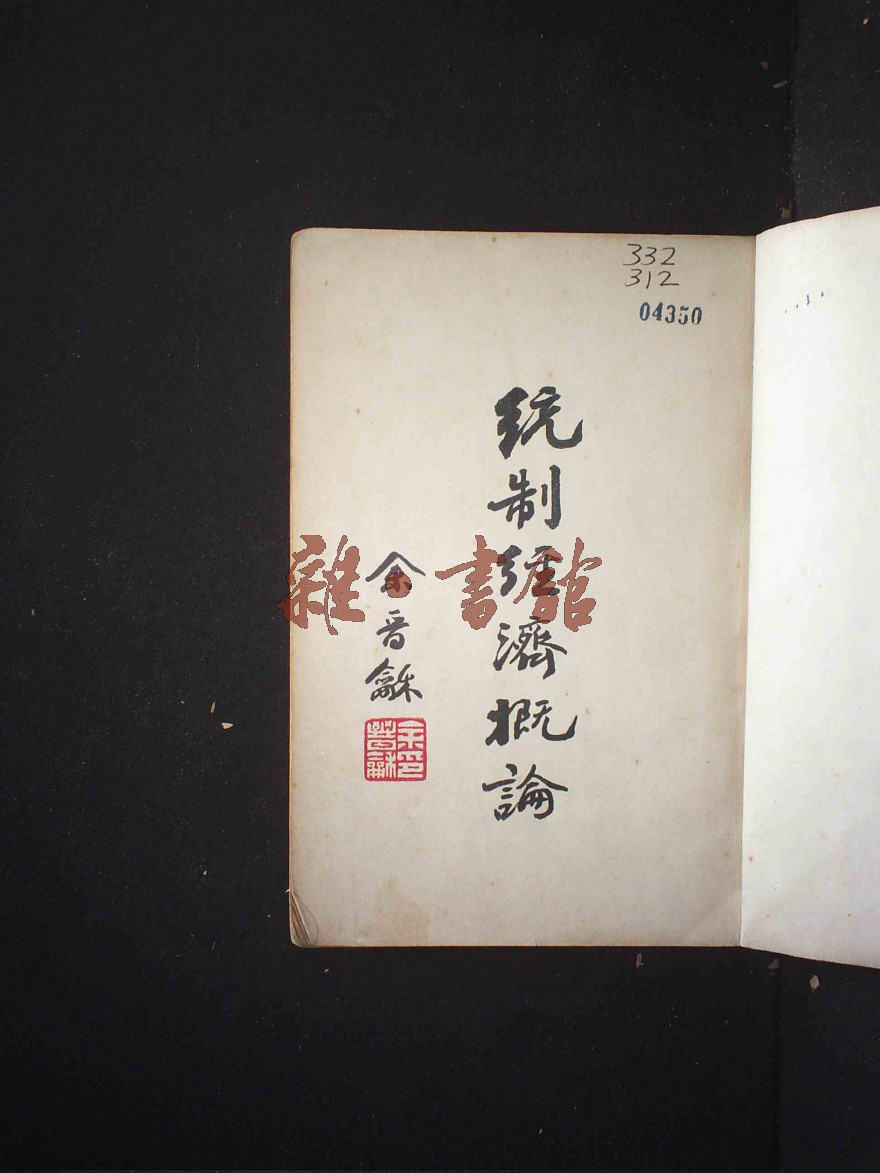 332
312
04350
統制經濟概論
余晉龢
余晉龢印
雜·書館